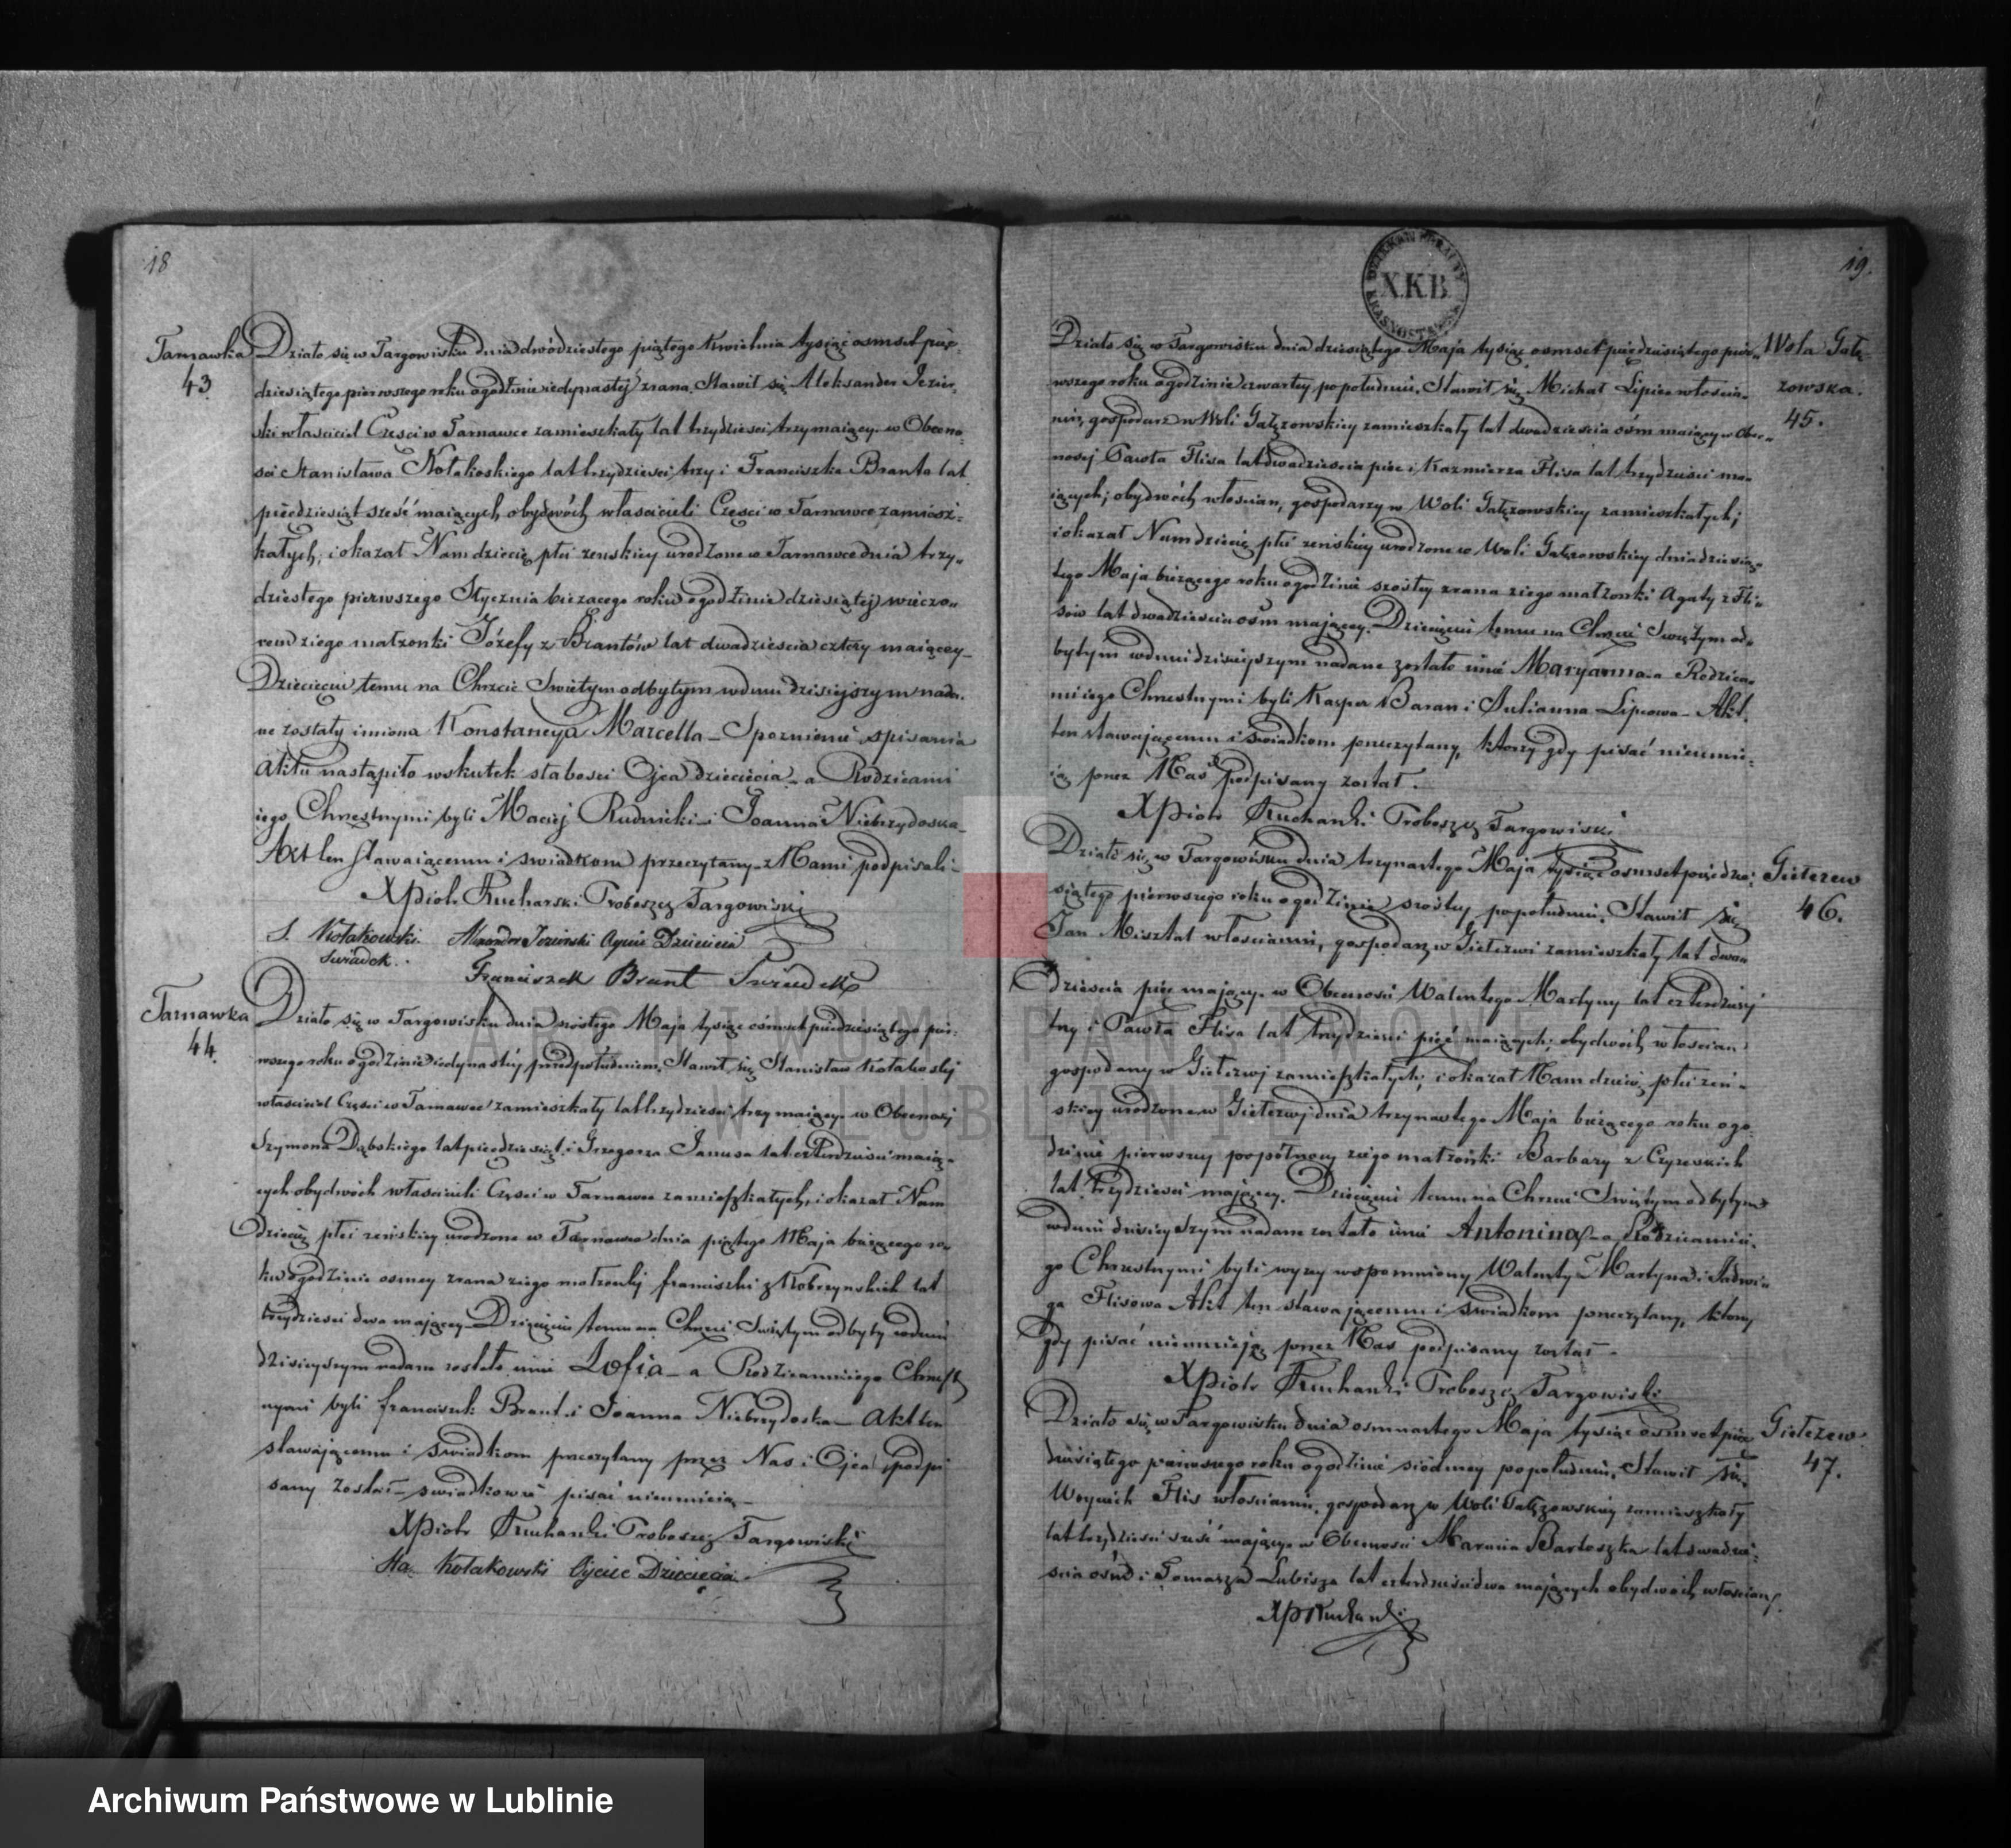 18
Tarnawka
43.
Działo się w Targowisku dnia dwódziestego piątego Kwietnia tysiąc osmset pięc„
dziesiątego pierwszego roku o godzinie iedynastéj zrana. Stawił się Aleksander Jezier„
ski własciciel Częsci w Tarnawce zamieszkały lat trzydziesci trzy maiący. w Obecno„
sci Stanisława Kołakoskiego lat trzydziesci trzy i Franciszka Branta lat
pięcdziesiąt sześć maiących, obydwóch własciceli Częsci w Tarnawce zamiesz„
kałych; i okazał Nam dziecię płci zenskiey urodzone w Tarnawce dnia trzy„
dziestego pierwszego Stycznia biezacego roku o godzinie dziesiątej wieczo„
rem z iego małzonki Józefy z Brantów lat dwadziescia cztery maiącey_
Dziecięciu temu na Chrzcie Swiętym odbytym w dniu dzisiejszym nada„
ne zostały imiona Konstancya Marcella _ Spoznienie spisania
aktu nastąpiło w skutek słabosci Ojca dziecięcia _ a Rodzicami
iego Chrzestnymi byli Maciej Rudnicki _ i Joanna Niebrzydoska _
Akt ten stawaiącemu i swiadkom przeczytany _ z Nami podpisali _
X Piotr Kucharski Proboszcz Targowiski
S. Kołakowski Alexander Jezierski Oyciec Dziecięcia
Swiadek.
Franciszek Brant Swiadek
Tarnawka
44.
Działo się w Targowisku dnia szostego Maja tysiąc ośmset pięcdziesiątego pier„
wszego roku o godzinie iedynastéj przed południem, Stawił się Stanisław Kołakoskj
własciciel Częsci w Tarnawce zamieszkały lat trzydziesci trzy maiący. w Obecnosci
Szymona Dąbskiego lat pięcdziesiąt i Grzegorza Janusa lat czterdziesci maią„
cych obydwóch włascicieli Częsci w Tarnawce zamieszkałych, i okazał Nam
Dziecię płci zeńskiey urodzone w Tarnawce dnia piątego Maja bieżącego ro„
ku o godzinie osmey zrana z iego małzonkj franciszki z Kobrzynskich lat
trzydziesci dwa mającey _ Dziecięciu temu na Chrzcie Swiętym odbyty w dniu
dzisieyszym nadane zostało imie Zofia _ a Rodzicami iego Chrzest
nymi byli franciszek Brant i Joanna Niebrzydoska _ Akt ten
stawającemu i Swiadkom przeczytany przez Nas i Ojca podpi
sany został _ swiadkowie pisać nieumieią _
X Piotr Kucharski Proboszcz Targowiski
Sta. Kołakowski Ojciec Dziecięcia
DZIEKAN X.K.B. KRASNOSTAWSKI
19.
Wola Gałę
zowska.
45.
Działo się w Targowisku dnia dziesiątego Maja tysiąc osmset pięcdziesiątego pier„
wszego roku o godzinie czwartey po południu. Stawił się Michał Lipiec włoscia„
nin, gospodarz w Woli Gałęzowskiey zamieszkały lat dwadziescia óśm maiący w Obec„
nosci Pawła Flisa lat dwadziescia pięc i Kazmierza Flisa lat trzydziesci ma„
iących; obydwóch włoscian, gospodarzy w Woli Gałęzowskiey zamieszkałych;
i okazał Nam dziecię płci zeńskiey urodzone w Woli Gałęzowskiey dnia dziesią„
tego Maja bieżącego roku o godzinie szostey zrana z iego małżonki Agaty z Fli„
sow lat dwadziescia osm mającey. Dziecięciu temu na Chrzcie Swiętym od„
bytym w dniu dzisieyszym nadane zostało imie Maryanna _ a Rodzica„
mi iego Chrzestnymi byli Kasper Baran i Julianna Lipcowa _ Akt
ten stawającemu i swiadkom przeczytany, ktorzy gdy pisać nieumi„
ią przez Nas podpisany został.
X Piotr Kucharski Proboszcz Targowiski
Giełczew
46.
Działo się w Targowisku dnia trzynastego Maja tysiąc osmset pięcdzie„
siątego pierwszego roku o godzinie szóstey popołudniu. Stawił się
Jan Misztal włoscianin, gospodarz w Giełczwi zamieszkały lat dwa„
dziescia pięc mający. w Obecnosci Walentego Martyny lat czterdziesci
trzy i Pawła Flisa lat trzydziesci pięć maiących; obydwóch włoscian
gospodarzy w Giełczwj zamieszkałych; i okazał Nam dziecię płci zeń„
skiey urodzone w Giełczwj dnia trzynastego Maja bieżącego roku o go
dzinie pierwszey popółnocy z iego małżonki Barbary z Czyzeskich
lat trzydziesci mającey. Dziecięciu temu na Chrzcie Swiętym odbytym
w dniu dzisieyszym nadane zostało imie Antonina _ a Rodzicami ie„
go Chrzestnymi byli wyzey wspomniony Walenty Martyna i Jadwi„
ga Flisowa Akt ten stawającemu i swiadkom przeczytany, ktorzy
gdy pisać nieumieją przez Nas podpisany został _
X Piotr Kucharski Proboszcz Targowiski
Giełczew
47.
Działo się w Targowisku dnia osmnastego Maja tysiąc osmset pięc
dziesiątego pierwszego roku o godzinie siódmey popołudniu, Stawił się
Woyciech Flis włoscianin, gospodarz w Woli Gałęzowskiey zamieszkały
lat trzydziesci sześć mający w Obecnosci Marcina Bartoszka lat dwadzie„
scia ośm i Tomasza Lubisza lat czterdziesci dwa mających obydwóch włoscian
XP Kucharski
ARCHIWUM PAŃSTWOWE
W LUBLINIE
Archiwum Państwowe w Lublinie